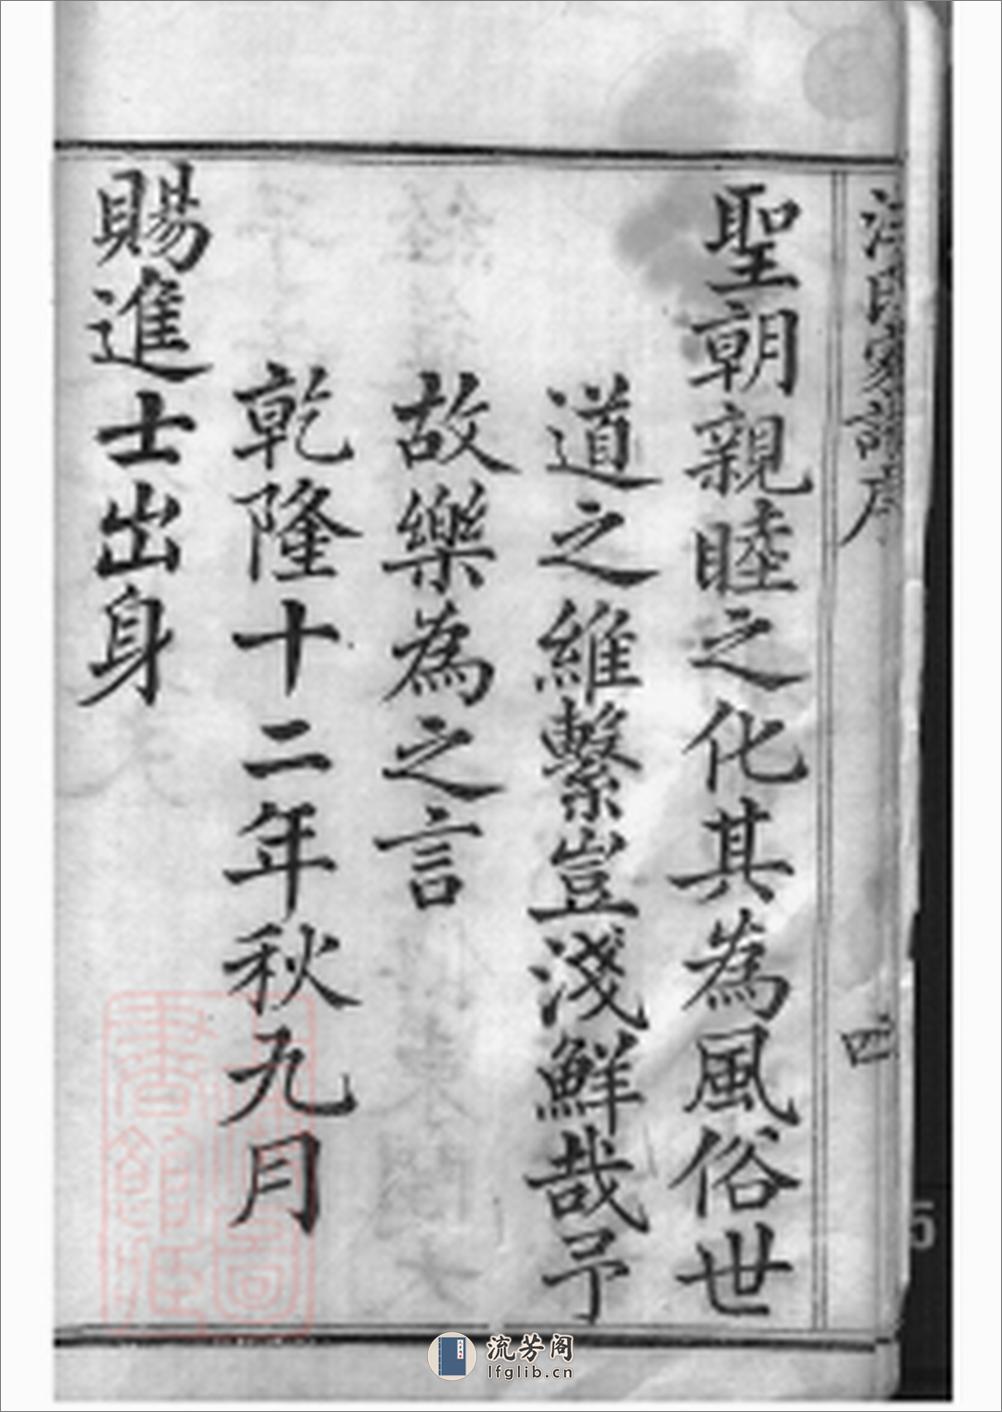 汪氏家譜序 四
聖朝親睦之化其為風俗世
道之維繫豈淺鮮哉予
故樂為之言
乾隆十二年秋九月
賜進士出身
5
流芳阁
lfglib.cn